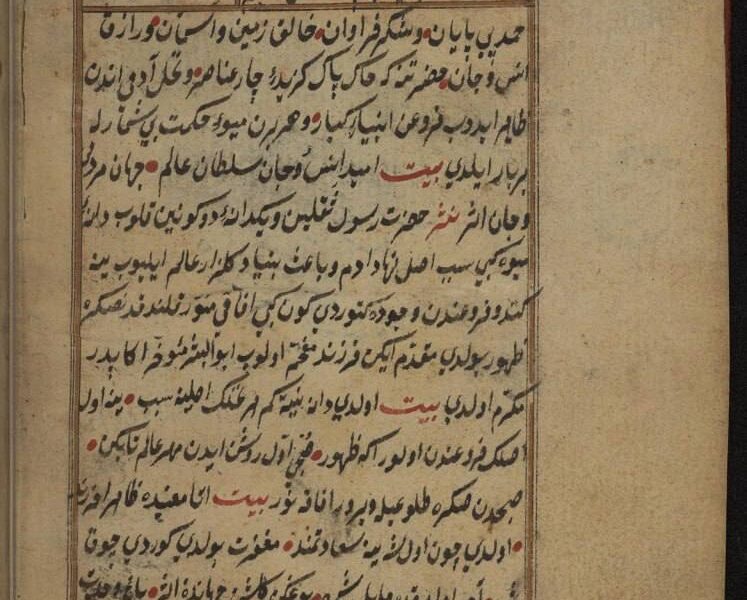 حمد بی پایان • وشکر فراوان • خالق زمین واسمان • ورازق
انس وجان • حضرتنه که خاك پاك کزیدۀ چار عناصر • ونخل آدمی اندن
ظاهر ایدوب فروعن انبیاء کبار • وهر برن میوۀ حکمت بی شمار له
پربار ایلدی بیت امید انس وجان سلطان عالم • جهان مردلی
وجان اثر نثر حضرت رسول ثقلین ویکدانۀ دو کونین قلوب دانۀ
میوه کبی سبب اصل نهاد ادم وباعث بنیاد کلزار عالم ایلیوب ینه
کندو فروعندن وجوده کتوردی کون کبی افاقی منور قلندقدنصکره
ظهور بولدی مقدم ایکن فرزند مفخم اولوب ابو البشر مؤخر اکا پدر
مکرم اولدی بیت اولدی دانه بنیه کم هر نخلك اصلینه سبب • ینه اول
اصلك فروعندن اولور اکه ظهور • صبحی اول روشن ایدن مهر عالمتابکن •
صبحدن صکره طلوعیله ویرور افاقه نور بیت اتا معنیده ظاهرا فرزند
• اولدی چون اول شه ینه سعادتمند • مغفرت بولدی کوردی چوق